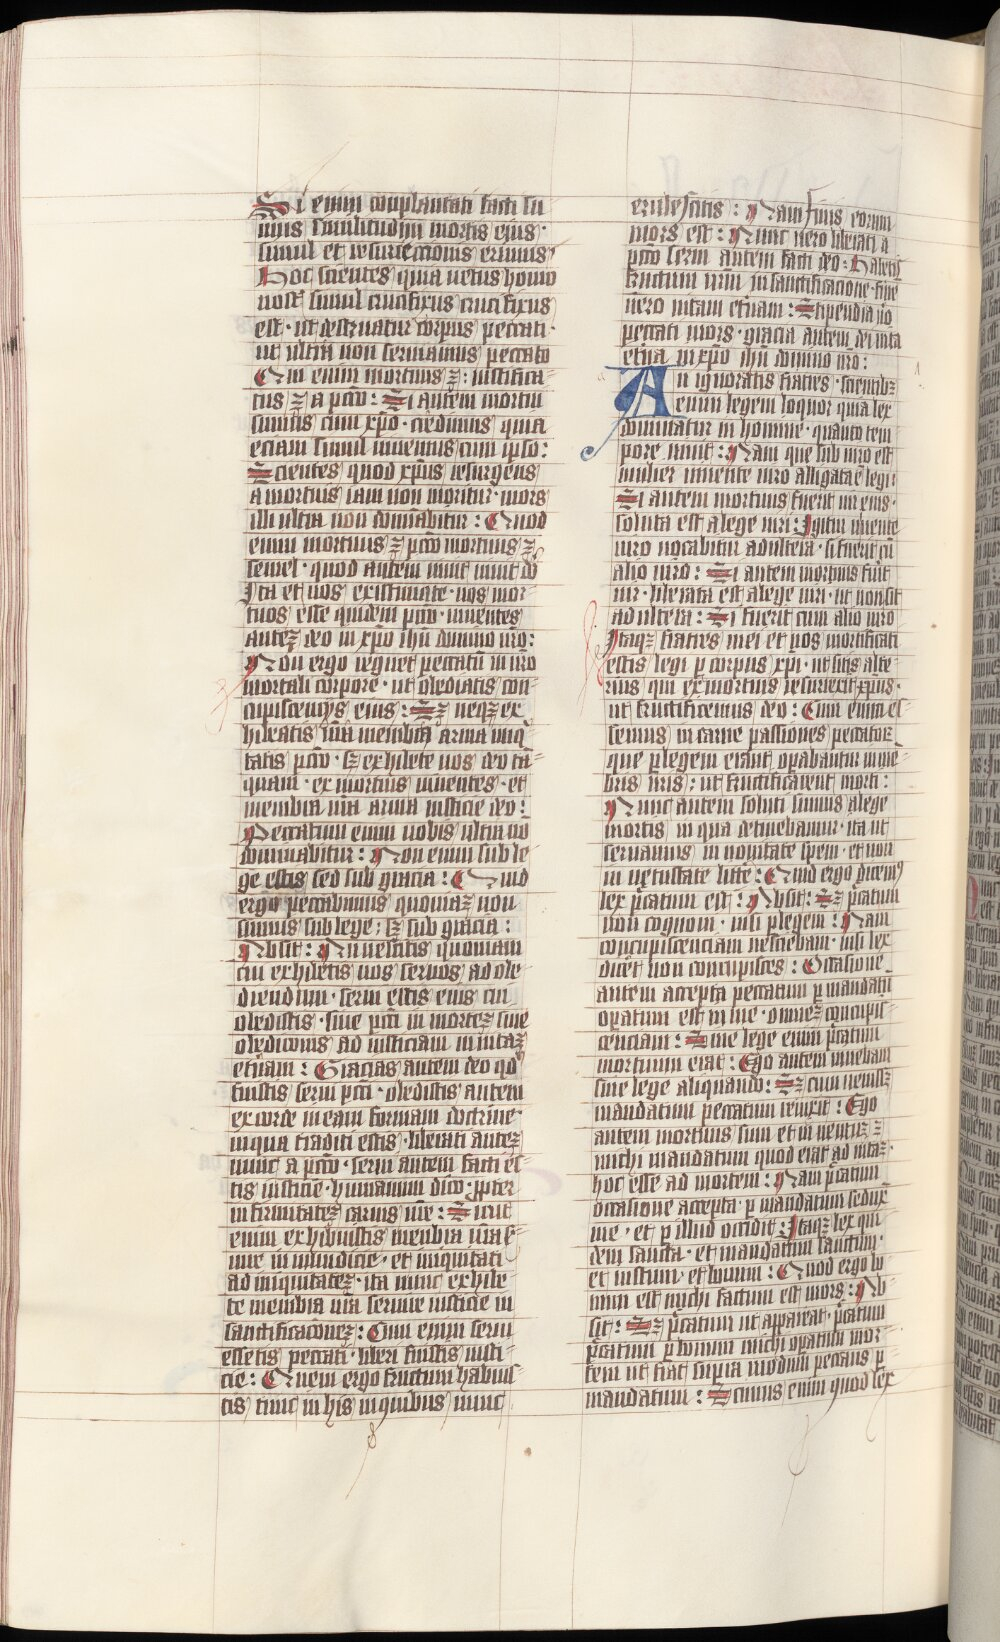 Si enim complantati facti su
mus similitudini mortis eius·
simul et resurrectionis erimus
Hoc scientes quia vetus homo
nost̄ simul crucifixus crucifixus
est· ut destruatur corpus peccati·
ut ultra non serviamus peccato
Qui enim mortuus ē: iustifica-
tus ē a pctō: Si autem mortui
sumus cum xpō· credimus quia
eciam simul vivemus cum ipso:
Scientes quod xpūs resurgens
a mortuis iam non moritur· mors
illi ultra non domīabitur: Quod
enim mortuus ē pctō mortuus ē
semel· quod autem vivit vivit dō
Ita et vos existimate· vos mor-
tuos esse quidem pctō· viventes
autez deo in xpō ihū domino nrō:
Non ergo regnet peccatū in vrō
mortali corpore· ut obediatis con-
cupiscencijs eius: Sz neqz ex
hibeatis vrā membra arma iniq̄
tatis pctō· sz exhibete vos deo ta-
quam· ex mortuis viventes· et
membra vrā arma iusticie deo:
Peccatum enim vobis ultra nō
dominabitur: Non enim sub le-
ge estis sed sub gracia: Quid
ergo peccabimus quoniaz non
sumus sub lege: sz sub gracia:
Absit: An nescitis quoniam
cui exhibetis vos servos ad obe
diendum· servi estis eius cui
obedistis· sive pcti in mortez sive
obedicionis ad iusticiam in vitaz
etnam: Gracias autem deo qd
fuistis servi pcti· obedistis autem
ex corde in eam formam doctrine
in qua traditi estis· liberati autez
nunc a pctō· servi autem facti es-
tis iusticie· humanum dico· ppter
infirmitatez carnis vrē: Sicut
enim exhibuistis membra vrā s̄
vire inmundicie· et iniquitati
ad iniquitatez· ita nunc exhibe
te membra vrā servire iusticie in
sanctificacionez: Cum enim servi
essetis peccati· liberi fuistis iusti-
cie: Quem ergo fructum habuis
tis tunc in his in quibus nunc
erubescitis: Nam finis eorum
mors est: Nunc vero liberati a
pctō servi autem facti deo· Habetis
fructum vrm in sanctificacione· fine
vero vitam etnam: Stipendia vō
peccati mors· gracia autem dei vita
etna in xpo ihū domino nro:
An ignoratis fratres· scientibz
enim legem loquor quia lex
dominatur in homine· quanto tem
pore vivit: Nam que sub viro est
mulier vivente viro alligata ē legi:
Si autem mortuus fuerit vir eius·
soluta est a lege viri: Igitur vivente
viro vocabitur adultera· si fuerit cū
alio viro: Si autem mortuus fuit
vir· liberata est a lege viri· ut non sit
adultera: Si fuerit cum alio viro
Itaqz fratres mei et vos mortificati
estis legi p corpus xpi· ut sitis alte-
rius qui ex mortuis resurrexit xpūs·
ut fructificemus deo: Cum enim es-
semus in carne passiones peccator
que p legem erant· opabantur in me-
bris nris: ut fructificarent morti:
Nunc autem soluti sumus a lege
mortis in qua detinebamur· ita ut
serviamus in novitate spem· et non
in vetustate littē: Quid ergo dicemꝰ
lex pccatum est: Absit: Sz pccatum
non cognovi· nisi p legem: Nam
concupiscenciam nesciebam· nisi lex
dicēt non concupisces: Occasione
autem accepta peccatum p mandatū
opatum est in me· omnez concupis-
cenciam: Sine lege enim pccatum
mortuum erat: Ego autem vivebam
sine lege aliquando: Sz cum venissz
mandatum peccatum revixit: Ego
autem mortuus sum et inventuz ē
michi mandatum quod erat ad vitaz·
hoc esse ad mortem: Nam pccatum
occasione accepta· p mandatum sedux
me· et p illud occidit: Itaqz lex qui
dem sancta· et mandatum sanctum·
et iustum· et bonum: Quod ergo bo
num est michi factum est mors: Ab
sit: Sz pccatum ut appareat· pccatum
pccatum p bonum michi opatum mor-
tem ut fiat supra modum peccans p
mandatum: Scimus enim quod lex